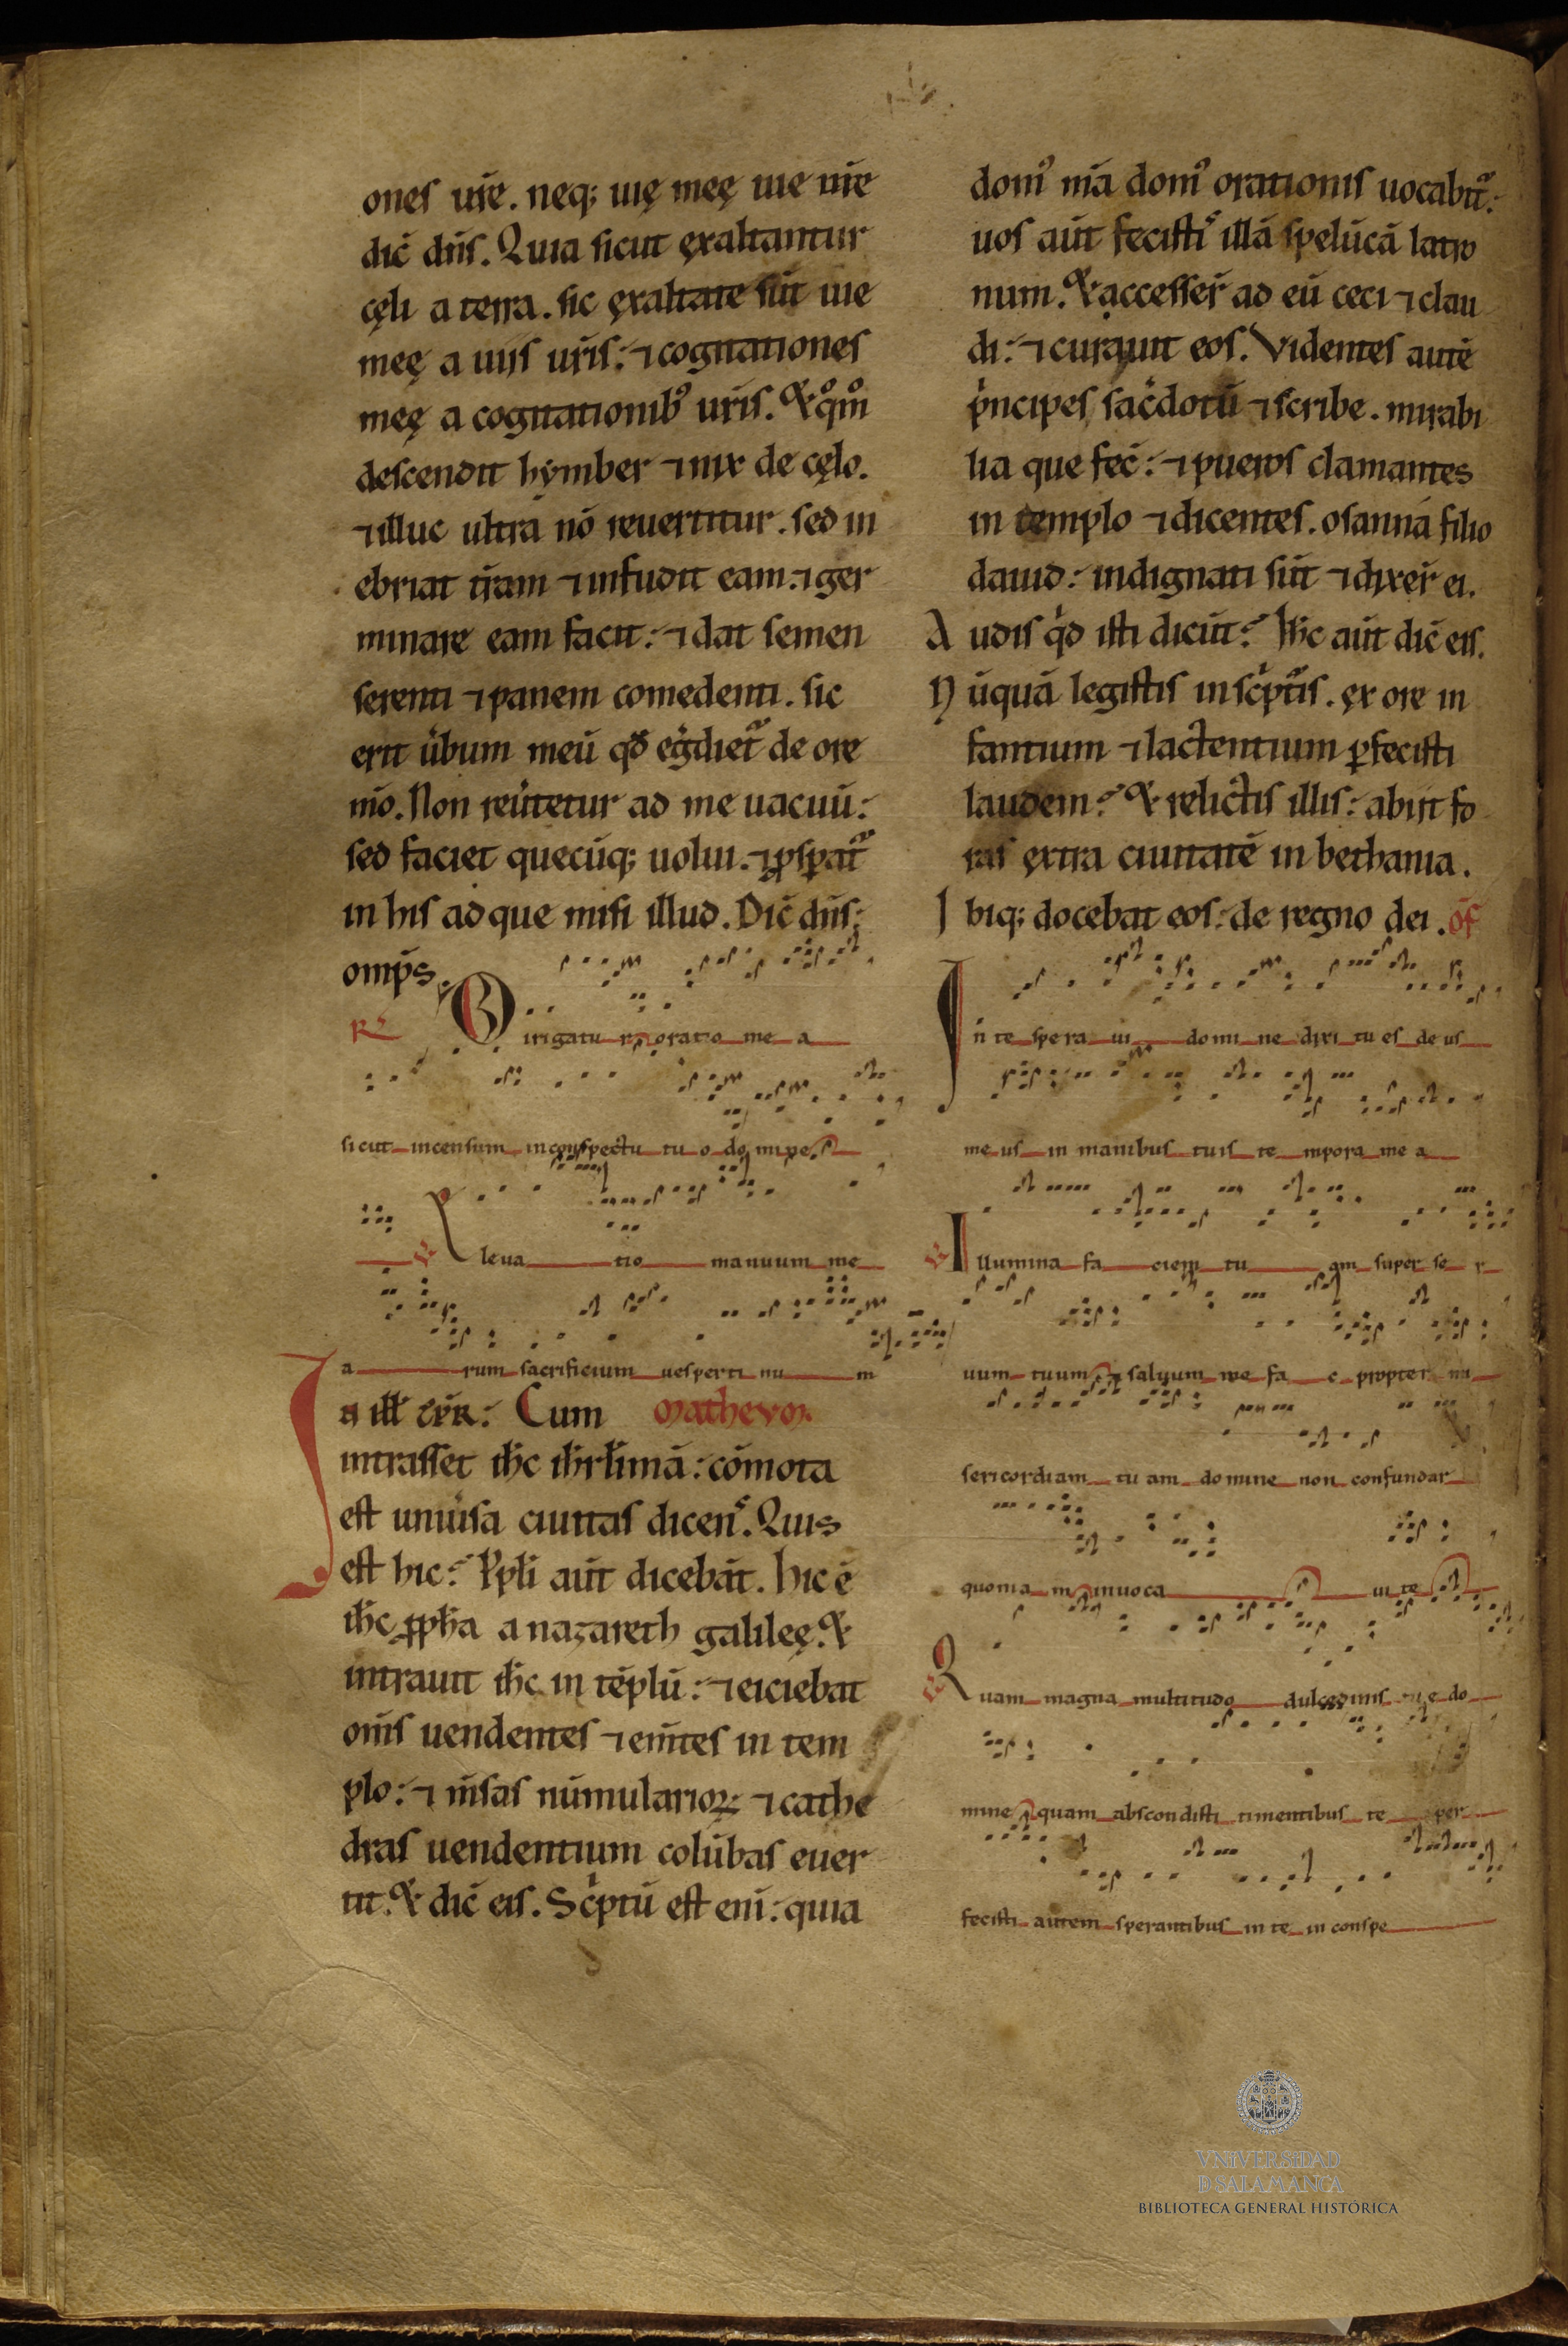 ones ur̄e. neq; uię meę uie ur̄e
dic̄ dn̄s. Quia sicut ęxaltantur
cęli a terra. sic ęxaltate sūt uie
meę a uiis ur̄is: ⁊ cognationes
meę a cognationibꝰ ur̄is. & qͦm̄
descendit hẏmber ⁊ nix de cęlo.
⁊ illuc ultrá nō reuertitur. sed in
ebriat tr̄am ⁊ infudit eam. ⁊ ger
minare eam facit: ⁊ dat semen
serenti ⁊ panem comedenti. sic
erit ūbum meū qd̄ egdiet̄ de ore
m̄o. Non reūtetur ad me uacuū:
sed faciet quecūq; uolui. ⁊ ꝓspat̄
in his ad que misi illud. Dic̄ dn̄s:
omp̄s.
R̄ Dirigatur oratio me a
sicut incensum in conspectu tu o do mine.
V̄ Eleua tio manuum me
a rum sacrificium uesperti nu m
In ill̄ tp̄R: Cum Matheum.
intrasset ih̄c ih̄rlimā: cōmota
est uniūsa ciuitas dicenˢ. Quis
est hic? P̄pli aūt dicebāt. hic ē
ih̄c ꝓph̄a a nazareth galileę. &
intrauit ih̄c in tēplū: ⁊ eiciebat
om̄s uendentes ⁊ em̄tes in tem
plo: ⁊ m̄sas nūmularioꝝ: ⁊ cathe
dras uendentium colūbas euer
tit. & dic̄ eis. Scͥptū est eni: quia
domꝰ m̄a domꝰ orationis uocabit̄:
uos aūt fecistiˢ illā spelūcā latro
num. & accesser̄ ad eū ceci ⁊ clau
di: ⁊ curauit eos. Videntes autē
pͥncipes sac̄dotū ⁊ scribe. mirabi
lia que fec̄: ⁊ pueros clamantes
in templo ⁊ dicentes. osanná filio
dauid: indignati sūt ⁊ dixer̄ ei.
A udis qͥd isti dicūt? Ih̄c aūt dic̄ eis.
N ūquā legistis in scͥpt̄is. ęx ore in
fantium ⁊ lactentium ꝑfecisti
laudem? & relictis illis: abiit fo
ras ęxtra ciuitatē in bethania.
I biq; docebat eos: de regno dei. of̄
In te spera ui domi ne dixi tu es de us
me us in manibus tuis te mpora me a
V̄ Illumina fa ciem tu am super se r
uum tuum saluum me fa c propter mi
sericordiam tu am do mine non confundar
quonia m inuoca ui te
V̄ Quam magna multitudo dulcedinis tue do
mine quam abscondisti timentibus te per
fecisti autem sperantibus in te in conspe
VNiVERSiDAD
D SALAMANCA
BIBLIOTECA GENERAL HISTÓRICA